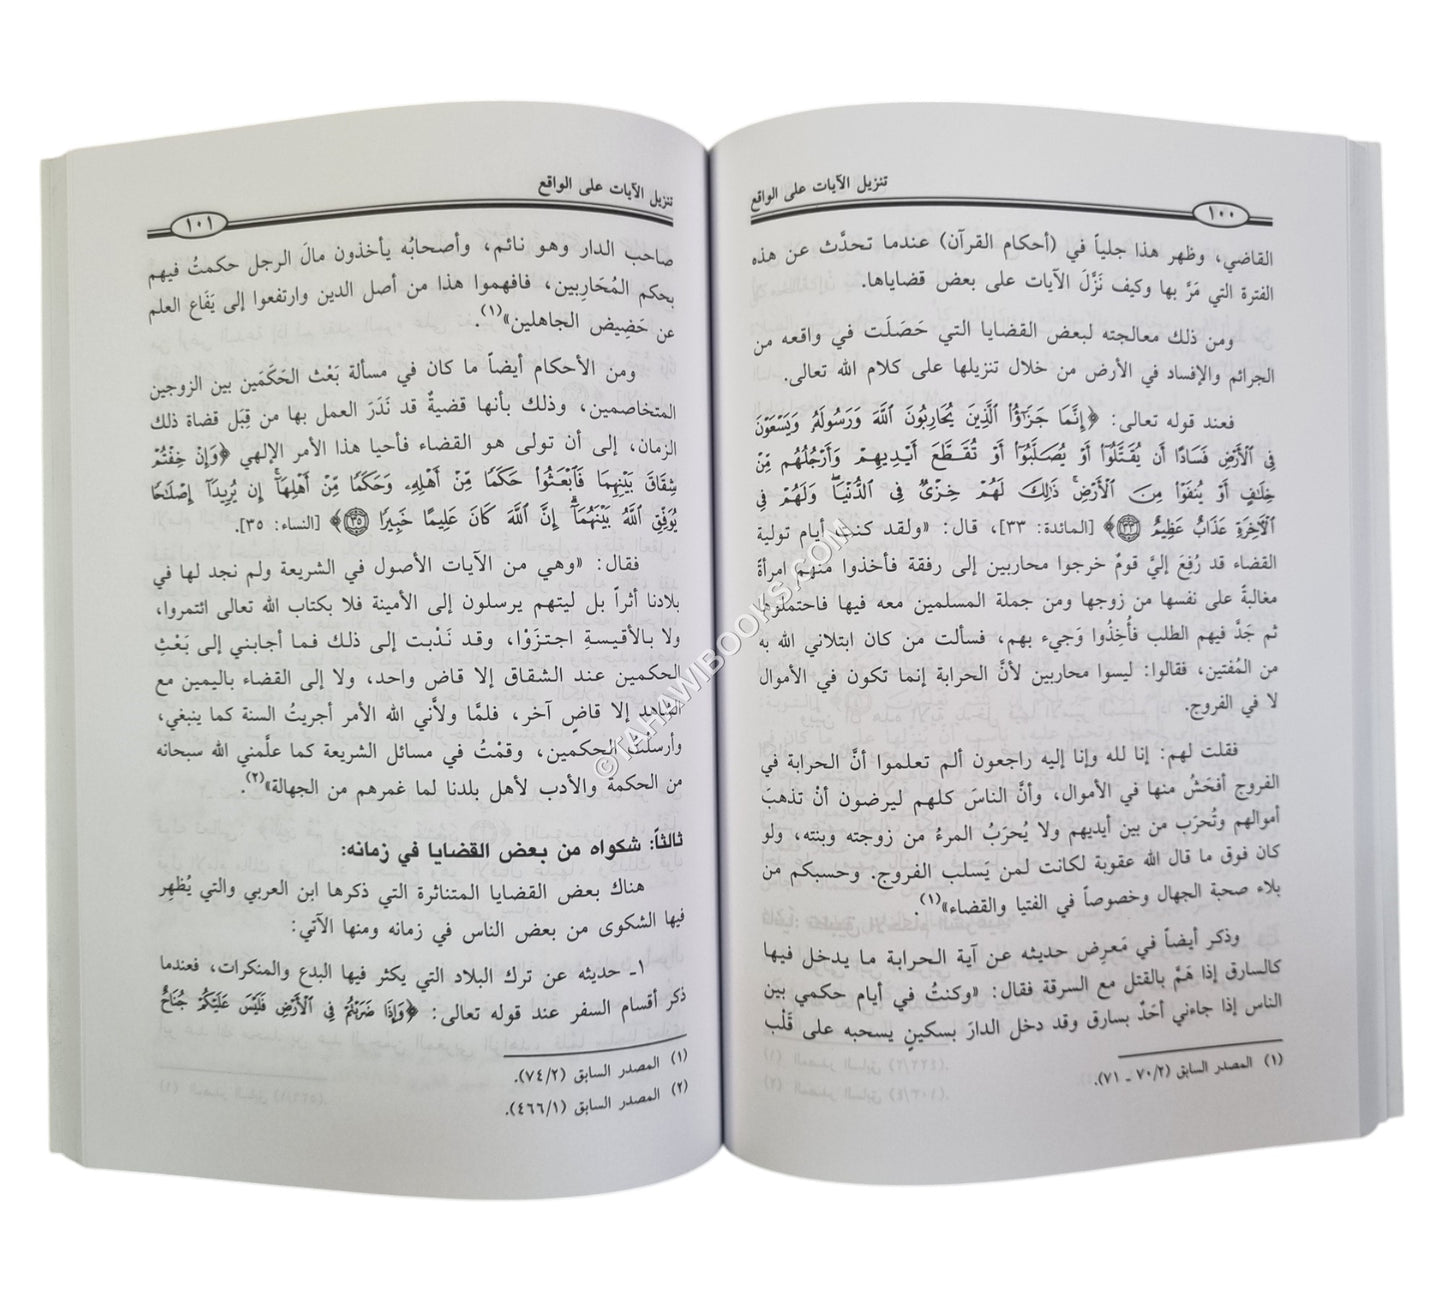 تنزيل الآيات على الواقع
١٠٠
القاضي، وظهر هذا جلياً في (أحكام القرآن) عندما تحدَّث عن هذه
الفترة التي مَرَّ بها وكيف نَزَّل الآيات على بعض قضاياها.
ومن ذلك معالجته لبعض القضايا التي حَصَلَت في واقعه من
الجرائم والإفساد في الأرض من خلال تنزيلها على كلام الله تعالى.
فعند قوله تعالى: ﴿إِنَّمَا جَزَٰٓؤُا۟ ٱلَّذِينَ يُحَارِبُونَ ٱللَّهَ وَرَسُولَهُۥ وَيَسْعَوْنَ
فِى ٱلْأَرْضِ فَسَادًا أَن يُقَتَّلُوٓا۟ أَوْ يُصَلَّبُوٓا۟ أَوْ تُقَطَّعَ أَيْدِيهِمْ وَأَرْجُلُهُم مِّنْ
خِلَٰفٍ أَوْ يُنفَوْا۟ مِنَ ٱلْأَرْضِ ۚ ذَٰلِكَ لَهُمْ خِزْىٌ فِى ٱلدُّنْيَا ۖ وَلَهُمْ فِى
ٱلْأَخِرَةِ عَذَابٌ عَظِيمٌ ﴿٣٣﴾﴾ [المائدة: ٣٣]، قال: «ولقد كنت أيام تولية
القضاء قد رُفِعَ إليَّ قومٌ خرجوا محاربين إلى رفقة فأخذوا منهم امرأةً
مغالبةً على نفسها من زوجها ومن جملة المسلمين معه فيها فاحتملوها
ثم جَدَّ فيهم الطلب فأُخِذُوا وَجيء بهم، فسألت من كان ابتلاني الله به
من المُفتين، فقالوا: ليسوا محاربين لأنَّ الحرابة إنما تكون في الأموال
لا في الفروج.
فقلت لهم: إنا لله وإنا إليه راجعون ألم تعلموا أنَّ الحرابة في
الفروج أفحَشُ منها في الأموال، وأنَّ الناسَ كلهم ليرضون أنْ تذهبَ
أموالهم وتُحرَب من بين أيديهم ولا يُحرَبُ المرءُ من زوجته وبنته، ولو
كان فوق ما قال الله عقوبة لكانت لمن يَسلب الفروج. وحسبكم من
بلاء صحبة الجهال وخصوصاً في الفتيا والقضاء»(١).
وذكر أيضاً في مَعرِض حديثه عن آية الحرابة ما يدخل فيها
كالسارق إذا هَمَّ بالقتل مع السرقة فقال: «وكنتُ في أيام حكمي بين
الناس إذا جاءني أحَدٌ بسارق وقد دخل الدارَ بسكينٍ يسحبه على قَلْب
(١) المصدر السابق (٢/ ٧٠ ـ ٧١).
تنزيل الآيات على الواقع
١٠١
صاحب الدار وهو نائم، وأصحابُه يأخذون مالَ الرجل حكمتُ فيهم
بحكم المُحَارِبين، فافهموا هذا من أصل الدين وارتفعوا إلى يَفَاع العلم
عن حَضِيض الجاهلين»(١).
ومن الأحكام أيضاً ما كان في مسألة بَعْث الحَكَمَين بين الزوجين
المتخاصمين، وذلك بأنها قضيةٌ قد نَدَرَ العمل بها من قِبَل قضاة ذلك
الزمان، إلى أن تولى هو القضاء فأحيا هذا الأمر الإلهي ﴿وَإِنْ خِفْتُمْ
شِقَاقَ بَيْنِهِمَا فَٱبْعَثُوا۟ حَكَمًا مِّنْ أَهْلِهِۦ وَحَكَمًا مِّنْ أَهْلِهَآ إِن يُرِيدَآ إِصْلَٰحًا
يُوَفِّقِ ٱللَّهُ بَيْنَهُمَآ ۗ إِنَّ ٱللَّهَ كَانَ عَلِيمًا خَبِيرًا ﴿٣٥﴾﴾ [النساء: ٣٥].
فقال: «وهي من الآيات الأصول في الشريعة ولم نجد لها في
بلادنا أثراً بل ليتهم يرسلون إلى الأمينة فلا بكتاب الله تعالى ائتمروا،
ولا بالأقيسةِ اجتزَوْا، وقد نَدْبت إلى ذلك فما أجابني إلى بَعْثِ
الحكمين عند الشقاق إلا قاض واحد، ولا إلى القضاء باليمين مع
الشاهد إلا قاضٍ آخر، فلمَّا ولاَّني الله الأمر أجريتُ السنة كما ينبغي،
وأرسلت الحكمين، وقمْتُ في مسائل الشريعة كما علَّمني الله سبحانه
من الحكمة والأدب لأهل بلدنا لما غمرهم من الجهالة»(٢).
ثالثاً: شكواه من بعض القضايا في زمانه:
هناك بعض القضايا المتناثرة التي ذكرها ابن العربي والتي يُظهِر
فيها الشكوى من بعض الناس في زمانه ومنها الآتي:
١ـ حديثه عن ترك البلاد التي يكثر فيها البدع والمنكرات، فعندما
ذكر أقسام السفر عند قوله تعالى: ﴿وَإِذَا ضَرَبْتُمْ فِى ٱلْأَرْضِ فَلَيْسَ عَلَيْكُمْ جُنَاحٌ
(١) المصدر السابق (٢/ ٧٤).
(٢) المصدر السابق (١/ ٤٦٦).
©TAHAWIBOOKS.COM